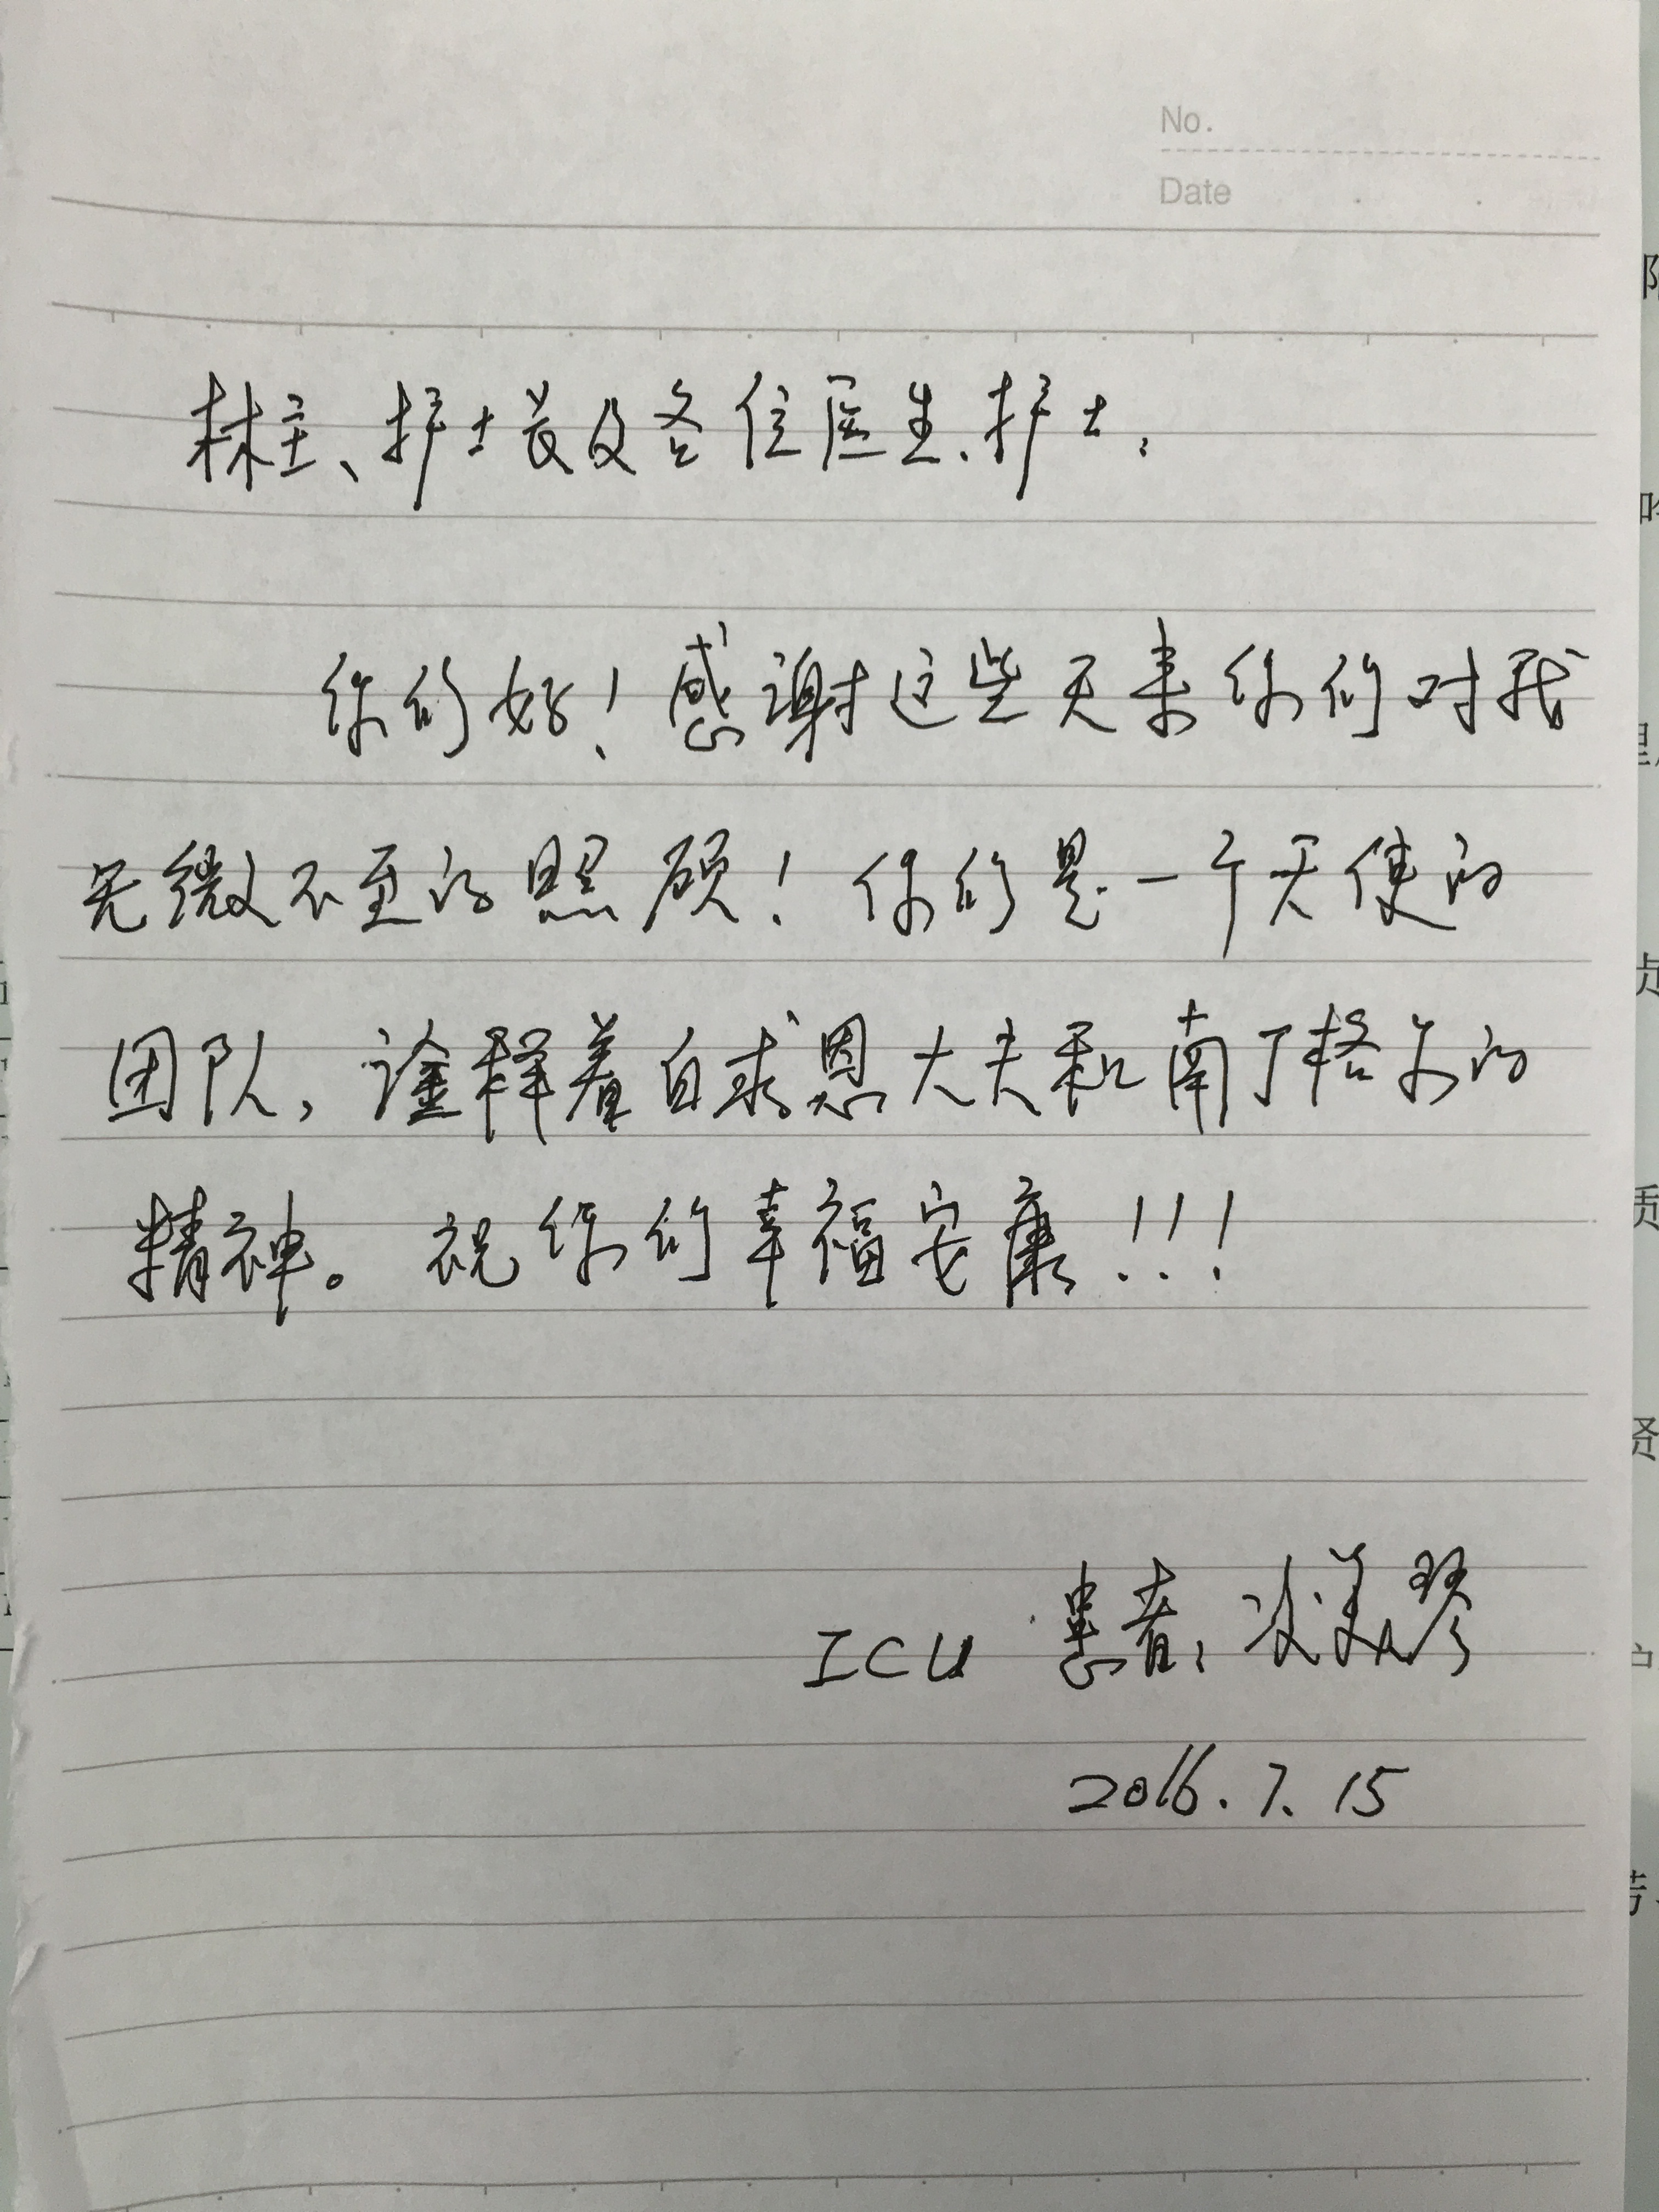 No.
Date
林主、护士长及各位医生、护士:
你们好！感谢这些天来你们对我
无微不至的照顾！你们是一个天使的
团队，诠释着白求恩大夫和南丁格尔的
精神。祝你们幸福安康！！！
ICU 患者：凌美琴
2016.7.15